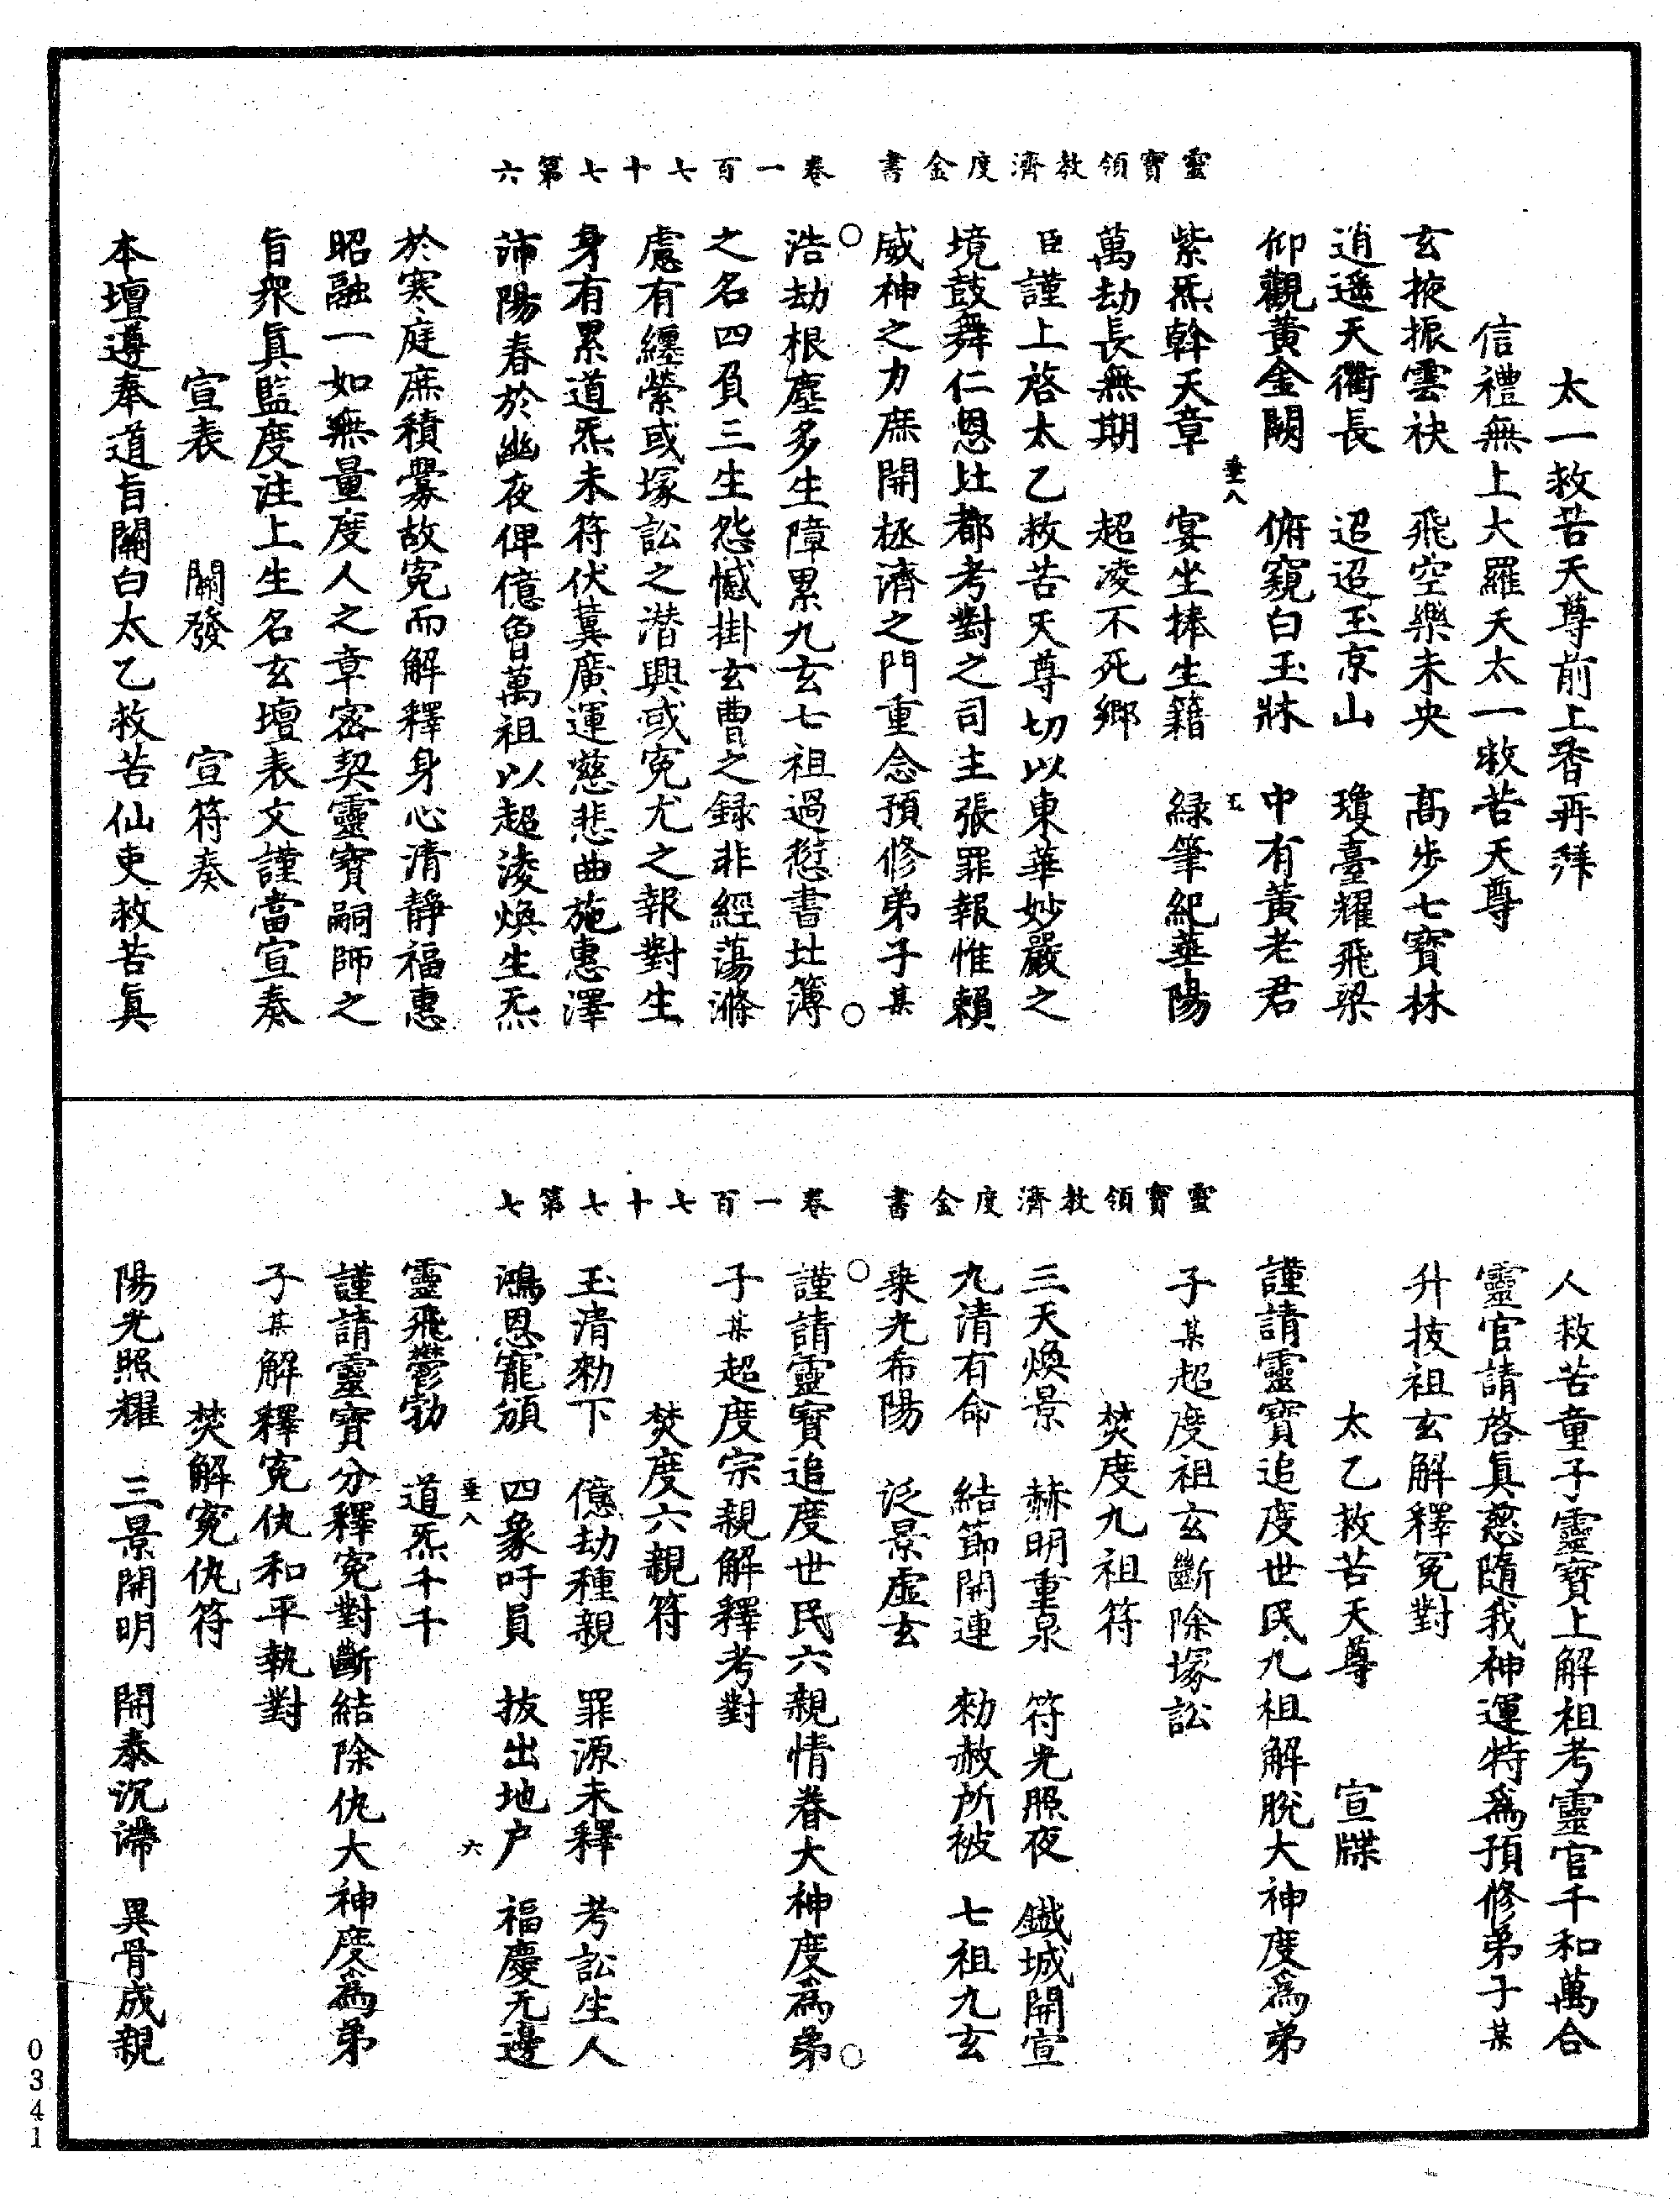 靈寶領教濟度金書　卷一百七十七第六
太一救苦天尊前上香再拜
信禮無上大羅天太一救苦天尊
玄掖振雲袂　飛空樂未央　高步七寶林
逍遙天衢長　迢迢玉京山　瓊臺耀飛梁
仰觀黃金闕　俯窺白玉牀　中有黃老君
垂八　五
紫炁幹天章　宴坐捧生籍　綠筆紀華陽
萬劫長無期　超凌不死鄉
臣謹上啓太乙救苦天尊切以東華妙嚴之
境鼓舞仁恩北都考對之司主張罪報惟賴
威神之力庶開拯濟之門重念預修弟子某
浩劫根塵多生障累九玄七祖過愆書北簿
之名四負三生怨憾掛玄曹之録非經蕩滌
慮有纏縈或塚訟之潛興或冤尤之報對生
身有累道炁未符伏冀廣運慈悲曲施惠澤
沛陽春於幽夜俾億曾萬祖以超淩煥生炁
於寒庭庶積釁故冤而解釋身心清靜福惠
昭融一如無量度人之章密契靈寶嗣師之
旨衆真監度注上生名玄壇表文謹當宣奏
宣表　關發　宣符奏
本壇遵奉道旨關白太乙救苦仙吏救苦真
靈寶領教濟度金書　卷一百七十七第七
人救苦童子靈寶上解祖考靈官千和萬合
靈官請啓真慈隨我神運特爲預修弟子某
升拔祖玄解釋冤對
太乙救苦天尊　宣牒
謹請靈寶追度世民九祖解脫大神度爲弟
子某超度祖玄斷除塚訟
焚度九祖符
三天煥景　赫明重泉　符光照夜　鐵城開宣
九清有命　結節開連　勑赦所被　七祖九玄
乘光希陽　泛景虛玄
謹請靈寶追度世民六親情眷大神度爲弟
子某超度宗親解釋考對
焚度六親符
玉清勑下　億劫種親　罪源未釋　考訟生人
鴻恩寵頒　四象吁員　拔出地户　福慶无邊
垂八　六
靈飛鬱勃　道炁千千
謹請靈寶分釋冤對斷結除仇大神度爲弟
子某解釋冤仇和平執對
焚解冤仇符
陽光照耀　三景開明　開泰沉滯　異骨成親
0341